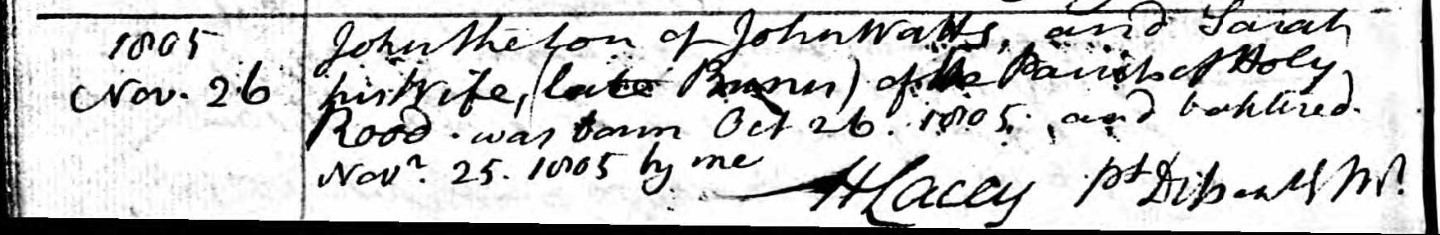 1805
Nov. 26
John the Son of John Watts, and Sarah
his Wife, (late) of the Parish of Holy
Rood. was born Oct 26. 1805. and baptized
Novr. 25. 1805 by me
H Lacey pt Dissentg Mr.